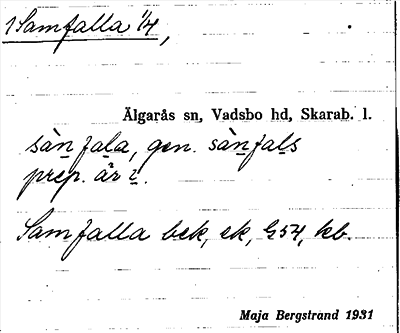 1 Samfalla 1/4,
Älgarås sn, Vadsbo hd, Skarab. l.
sàn fala, gen. sàn fals
prep. är i.
Samfalla bek, ek, G54, kb.
Maja Bergstrand 1931